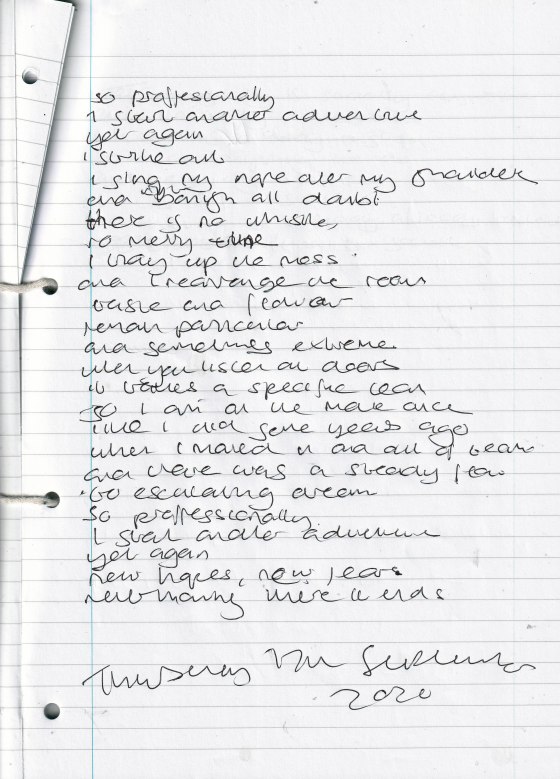 so professionally
I start another adventure
yet again
I strike out
I sling my hope over my shoulder
and banish all doubt
there is no whistle,
no merry tune
I tidy up the mess
and I rearrange the room
taste and flavour
remain particular
and sometimes extreme
when you listen at doors
it takes a specific
so I am on the move once
like I did some years ago
when I moved in and out of
and there was a steady flow
to escalating dream
so professionally
I start another adventure
yet again
new hopes, new fears
never knowing where it ends
Thursday
2020